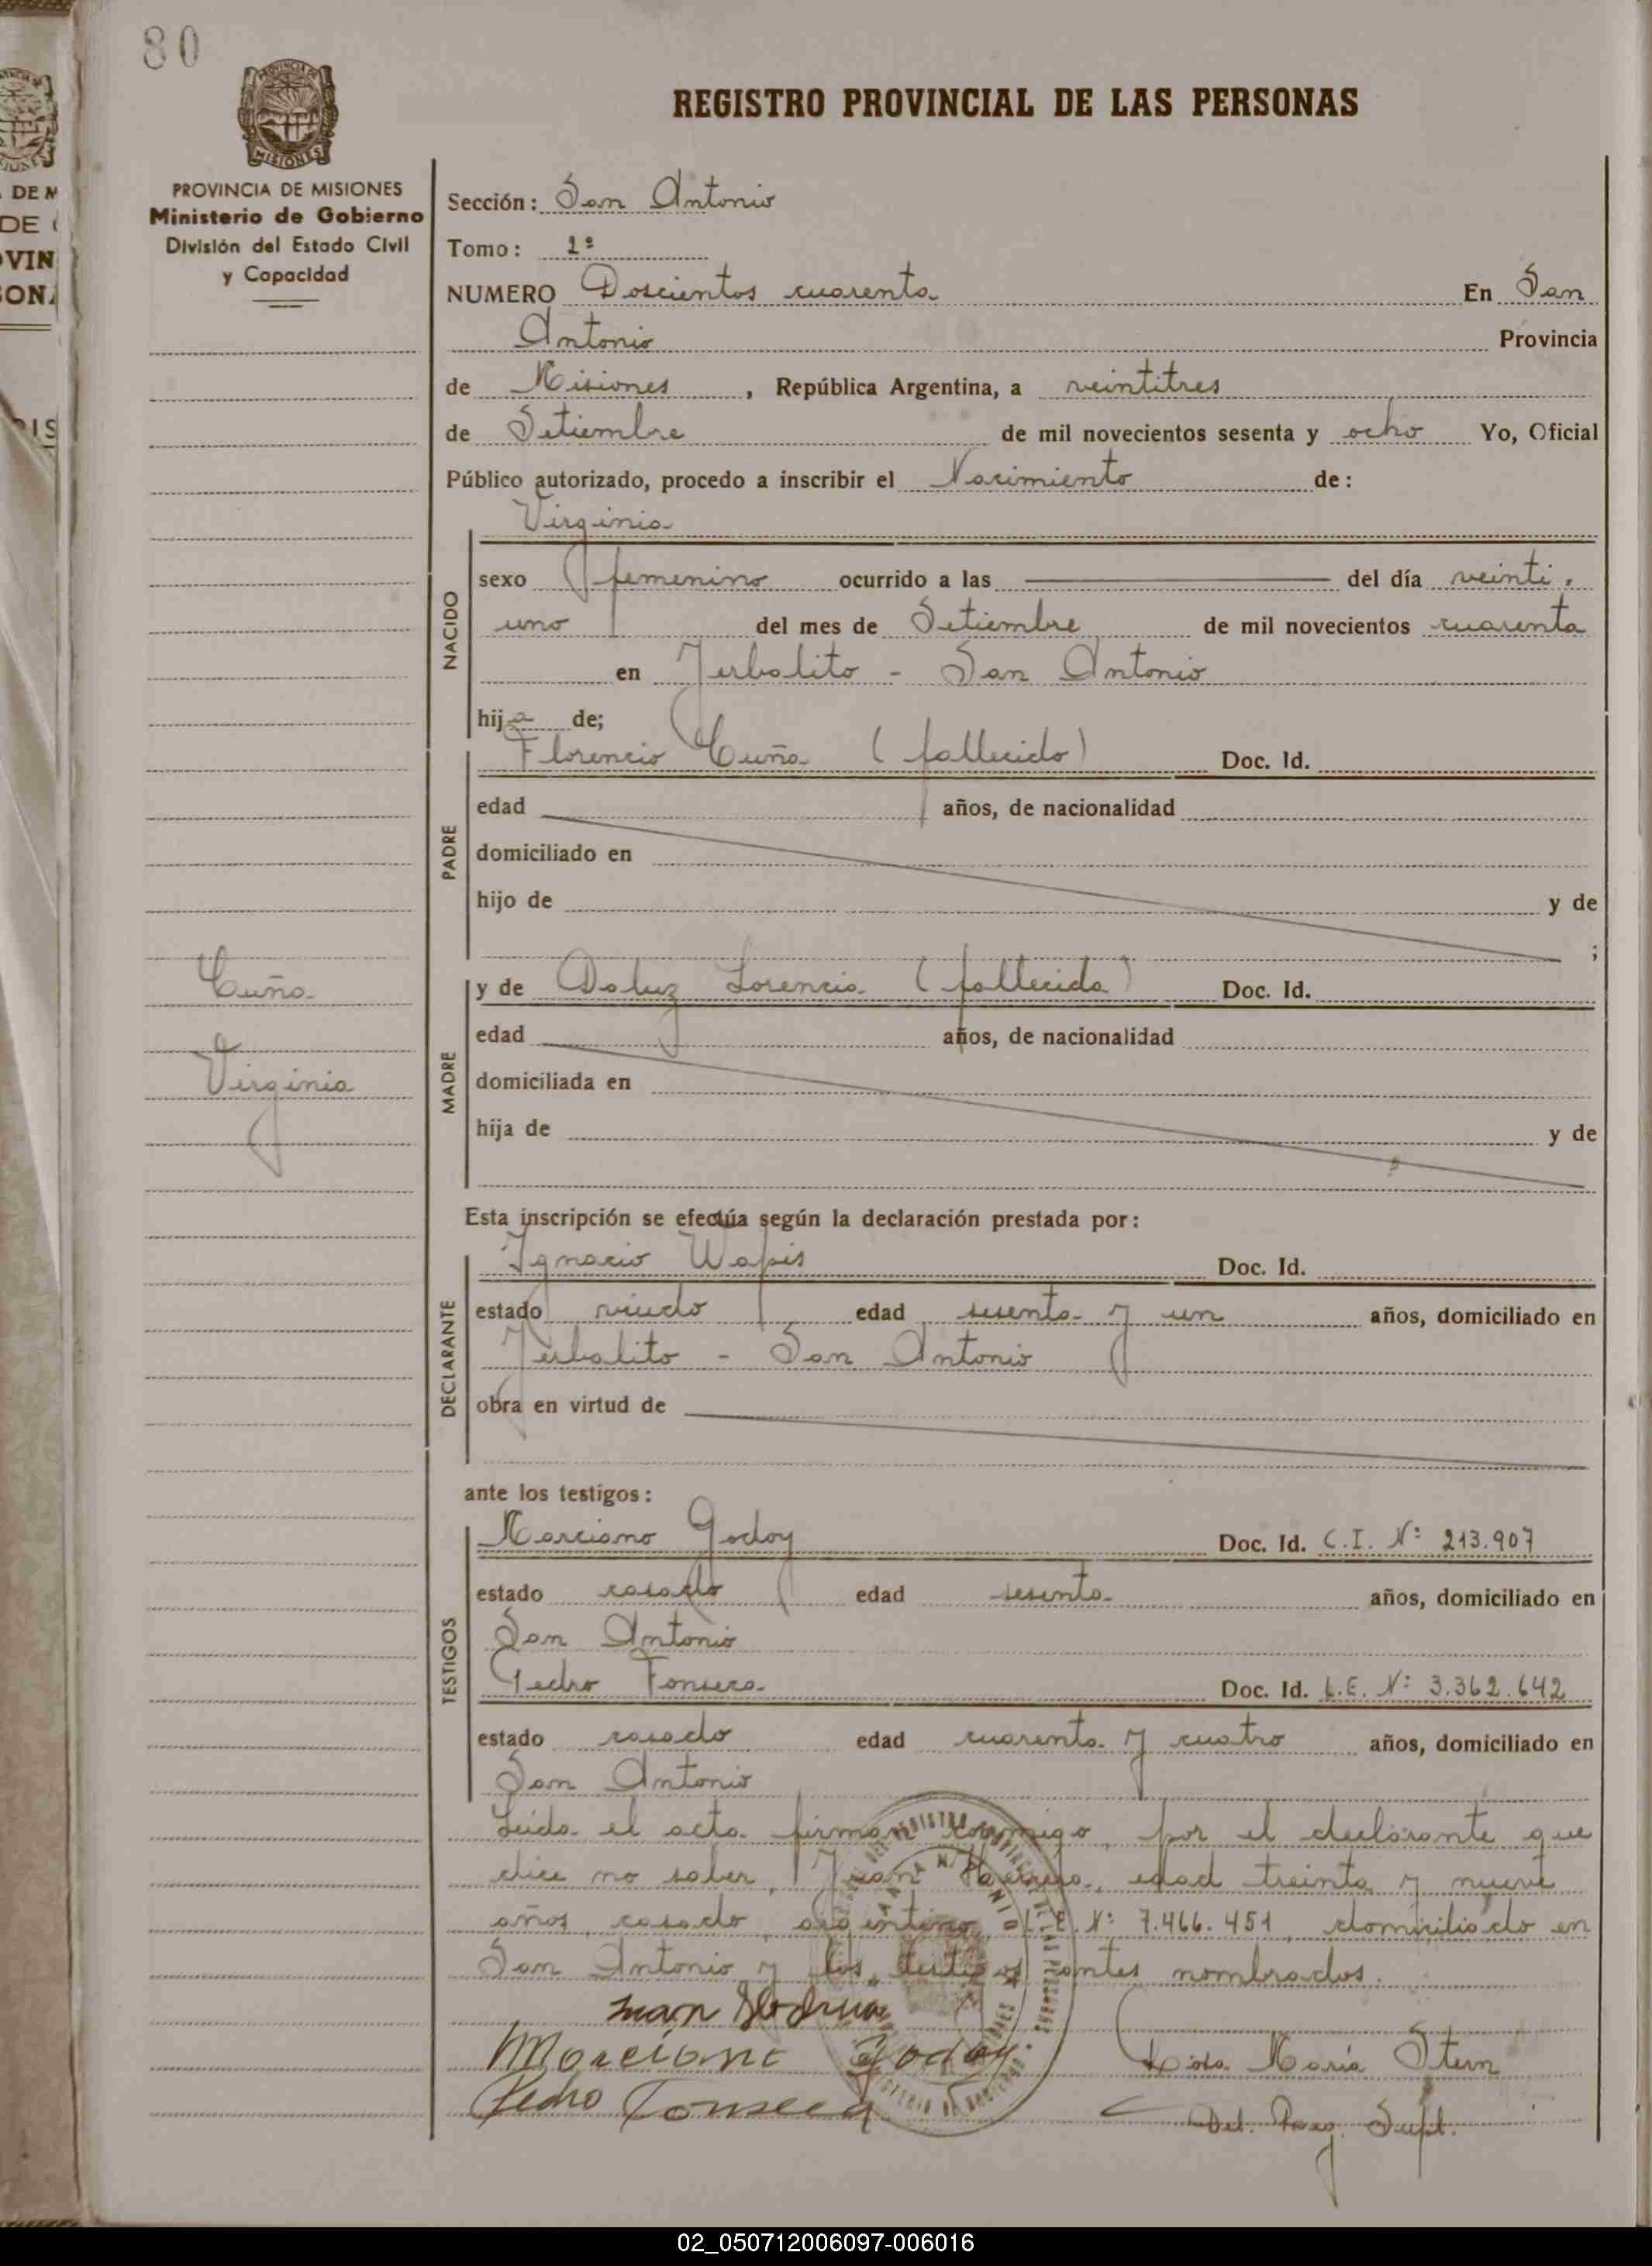 80
REGISTRO PROVINCIAL DE LAS PERSONAS
PROVINCIA DE MISIONES
Ministerio de Gobierno
División del Estado Civil
y Capacidad
Sección: San Antonio
Tomo: 2º
NUMERO Doscientos cuarenta En San
Antonio Provincia
de Misiones, República Argentina, a veintitres
de Setiembre de mil novecientos sesenta y ocho Yo, Oficial
Público autorizado, procedo a inscribir el Nacimiento de:
Virginia
NACIDO
sexo femenino ocurrido a las del día veinti
uno del mes de Setiembre de mil novecientos cuarenta
en Yerbalito - San Antonio
hija de;
PADRE
Florencio Cuña (fallecido) Doc. Id.
edad años, de nacionalidad
domiciliado en
hijo de y de
;
Cuña
Virginia
MADRE
y de Daluz Lorencia (fallecida) Doc. Id.
edad años, de nacionalidad
domiciliada en
hija de y de
Esta inscripción se efectúa según la declaración prestada por:
DECLARANTE
Ignacio Wapis Doc. Id.
estado viudo edad sesenta y un años, domiciliado en
Yerbalito - San Antonio
obra en virtud de
ante los testigos:
TESTIGOS
Marciano Godoy Doc. Id. C.I. Nº 213.907
estado casado edad sesenta años, domiciliado en
San Antonio
Pedro Fonseca Doc. Id. L.E. Nº 3.362.642
estado casado edad cuarenta y cuatro años, domiciliado en
San Antonio
Leida el acta firman conmigo, por el declarante que
dice no saber, Juan edad treinta y nueve
años, casado, argentino, L.E. Nº 7.466.451, domiciliado en
San Antonio y los testigos antes nombrados.
Juan
Marciano Godoy
Pedro Fonseca
María Stern
Del. Reg. Supt.
02_050712006097-006016